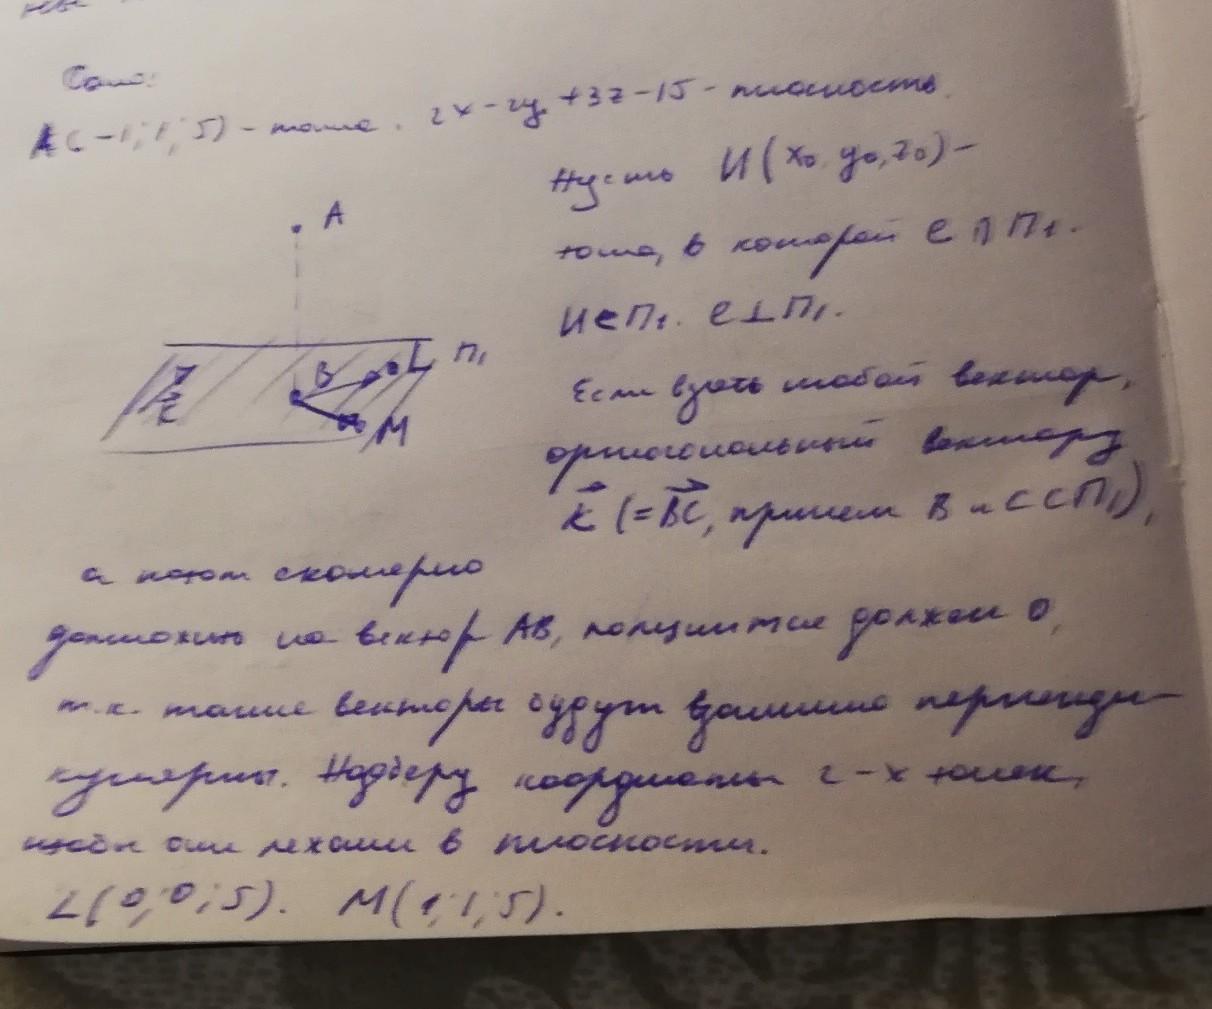 A(-1; 1; 5) - точка. 2x-2y+3z-15 - плоскость.
A
Пусть И(x₀, y₀, z₀) -
точка, в которой e ∩ П₁.
И∈П₁. e⊥П₁.
B L П₁
M
Если взять любой вектор,
ортогональный вектору
k (=BC, причем B и C ⊂ П₁),
а потом скалярно
домножить на вектор AB, получится должен 0,
т.к. такие векторы будут взаимно перпенди-
кулярны. Подберу координаты 2-х точек,
чтобы они лежали в плоскости.
L(0; 0; 5). M(1; 1; 5).